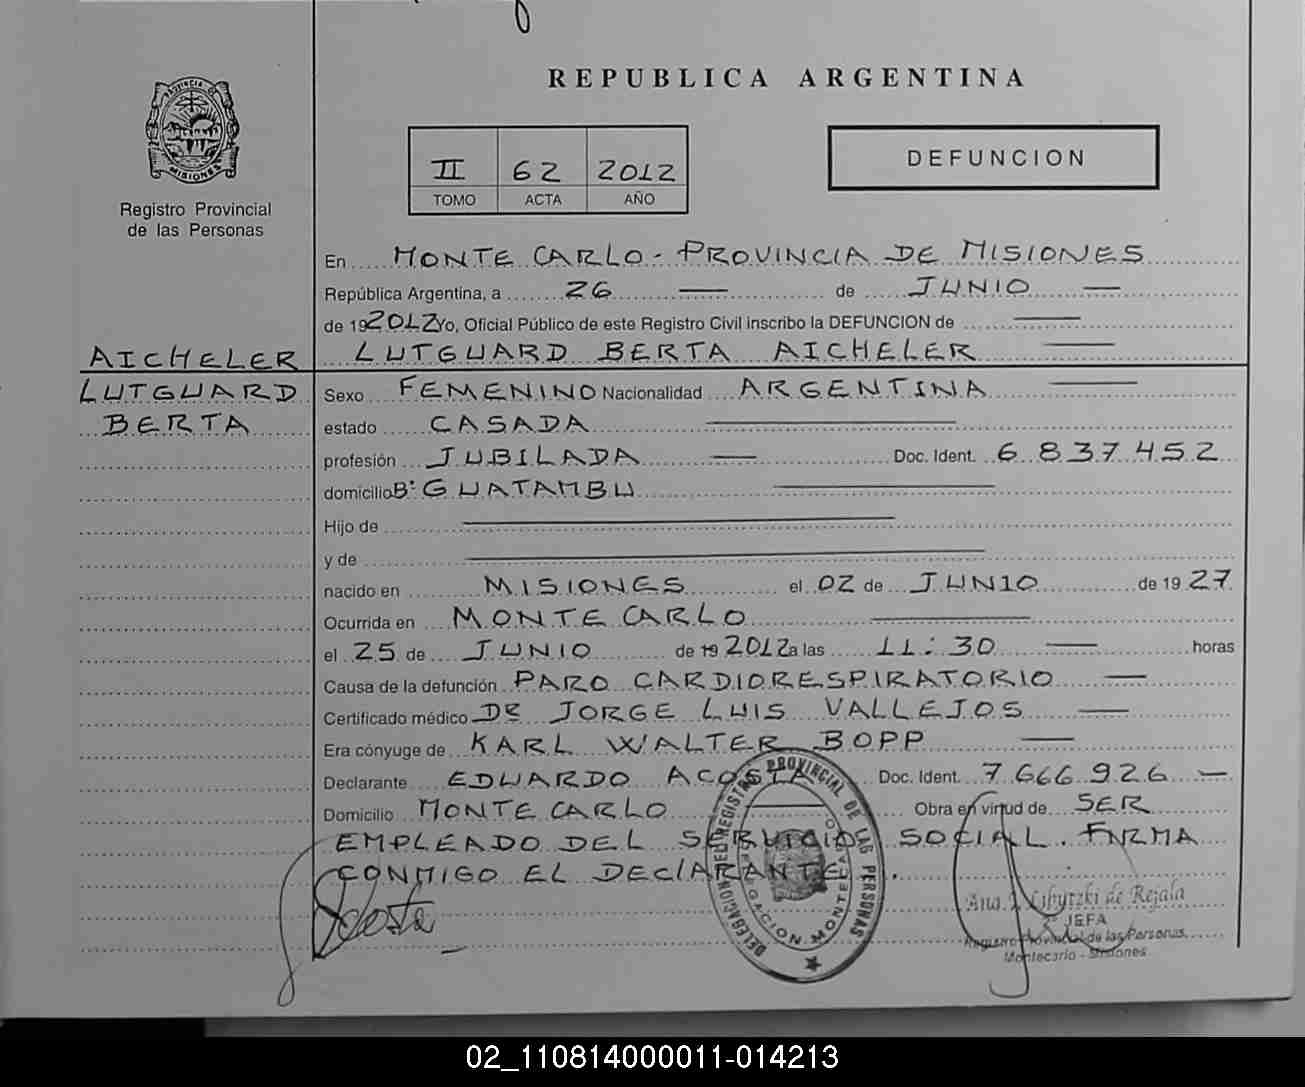 REPUBLICA ARGENTINA
PROVINCIA D
MISIONES
Registro Provincial
de las Personas
II 62 2012
TOMO ACTA AÑO
DEFUNCION
En MONTE CARLO - PROVINCIA DE MISIONES
República Argentina, a 26 de JUNIO
de 192012 Yo, Oficial Público de este Registro Civil inscribo la DEFUNCION de
AICHELER
LUTGUARD
BERTA
LUTGUARD BERTA AICHELER
Sexo FEMENINO Nacionalidad ARGENTINA
estado CASADA
profesión JUBILADA Doc. Ident. 6 837 452
domicilio B: GUATAMBU
Hijo de
y de
nacido en MISIONES el 02 de JUNIO de 1927
Ocurrida en MONTE CARLO
el 25 de JUNIO de 19 2012 a las 11:30 horas
Causa de la defunción PARO CARDIORESPIRATORIO
Certificado médico DR JORGE LUIS VALLEJOS
Era cónyuge de KARL WALTER BOPP
Declarante EDUARDO ACOSTA Doc. Ident. 7 666 926
Domicilio MONTE CARLO Obra en virtud de SER
EMPLEADO DEL SERVICIO SOCIAL. FIRMA
CONMIGO EL DECLARANTE.
DELEGACION DEL REGISTRO PROVINCIAL DE LAS PERSONAS
Acosta
de Rejala
JEFA
Registro Provincial de las Personas
Montecarlo - Misiones
02_110814000011-014213